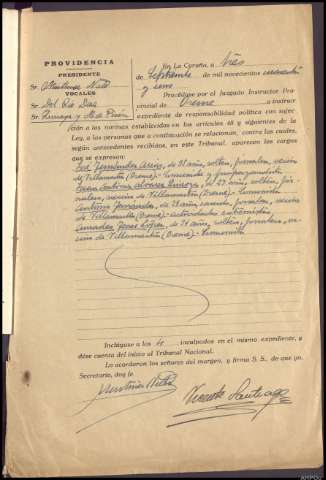 PROVIDENCIA
PRESIDENTE
Sr.
VOCALES
Sr. Del Rio Diaz
Sr.
En La Coruña, a tres
de Septiembre de mil novecientos cuarenta
y uno
Procédase por el Juzgado Instructor Pro-
vincial de Orense a instruir
expediente de responsabilidad política con suje-
ción a las normas establecidas en los artículos 48 y siguientes de la
Ley, a las personas que a continuación se relacionan, contra las cuales,
según antecedentes recibidos, en este Tribunal, aparecen los cargos
que se expresan:
José Fernández de 31 años, soltero, jornalero, vecino
de Villamartín (Orense)- Comunista y propagandista
Antonio Alvarez de 27 años, soltero, jor-
nalero, vecino de Villamartín (Orense)- Comunista
Antonio Fernández, de 29 años, casado, jornalero, vecino
de Villamartín (Orense)- actividades extremistas
Amadeo Pérez López, de 29 años, soltero, jornalero, ve-
cino de Villamartín (Orense)- Comunista
Inclúyase a los 4 inculpados en el mismo expediente, y
dése cuenta del inicio al Tribunal Nacional.
Lo acordaron los señores del margen, y firma S. S. de que yo,
Secretario, doy fe
Vicente Santiago
AHPOu